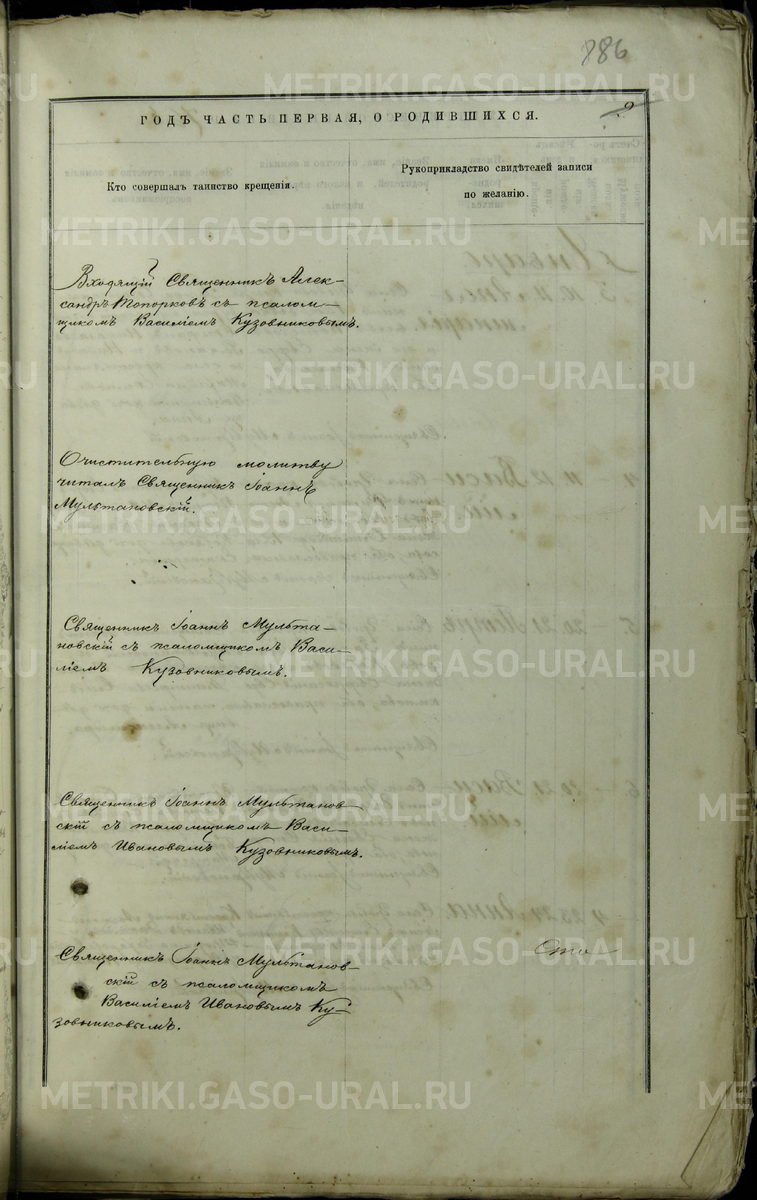 886
ГОДЪ ЧАСТЬ ПЕРВАЯ, О РОДИВШИХСЯ.
Кто совершалъ таинство крещенія.
Рукоприкладство свидѣтелей записи
по желанію.
Входящій Священникъ Алек-
сандръ Топорковъ съ псалом-
щикомъ Василіемъ Кузовниковымъ.
Очистительную молитву
читалъ Священникъ Іоаннъ
Мультановскій.
Священникъ Іоаннъ Мульта-
новскій съ псаломщикомъ Васи-
ліемъ Кузовниковымъ.
Священникъ Іоаннъ Мультанов-
скій съ псаломщикомъ Васи-
ліемъ Ивановымъ Кузовниковымъ.
Священникъ Іоаннъ Мультанов-
скій съ псаломщикомъ
Василіемъ Ивановымъ Ку-
зовниковымъ.
METRIKI.GASO-URAL.RU